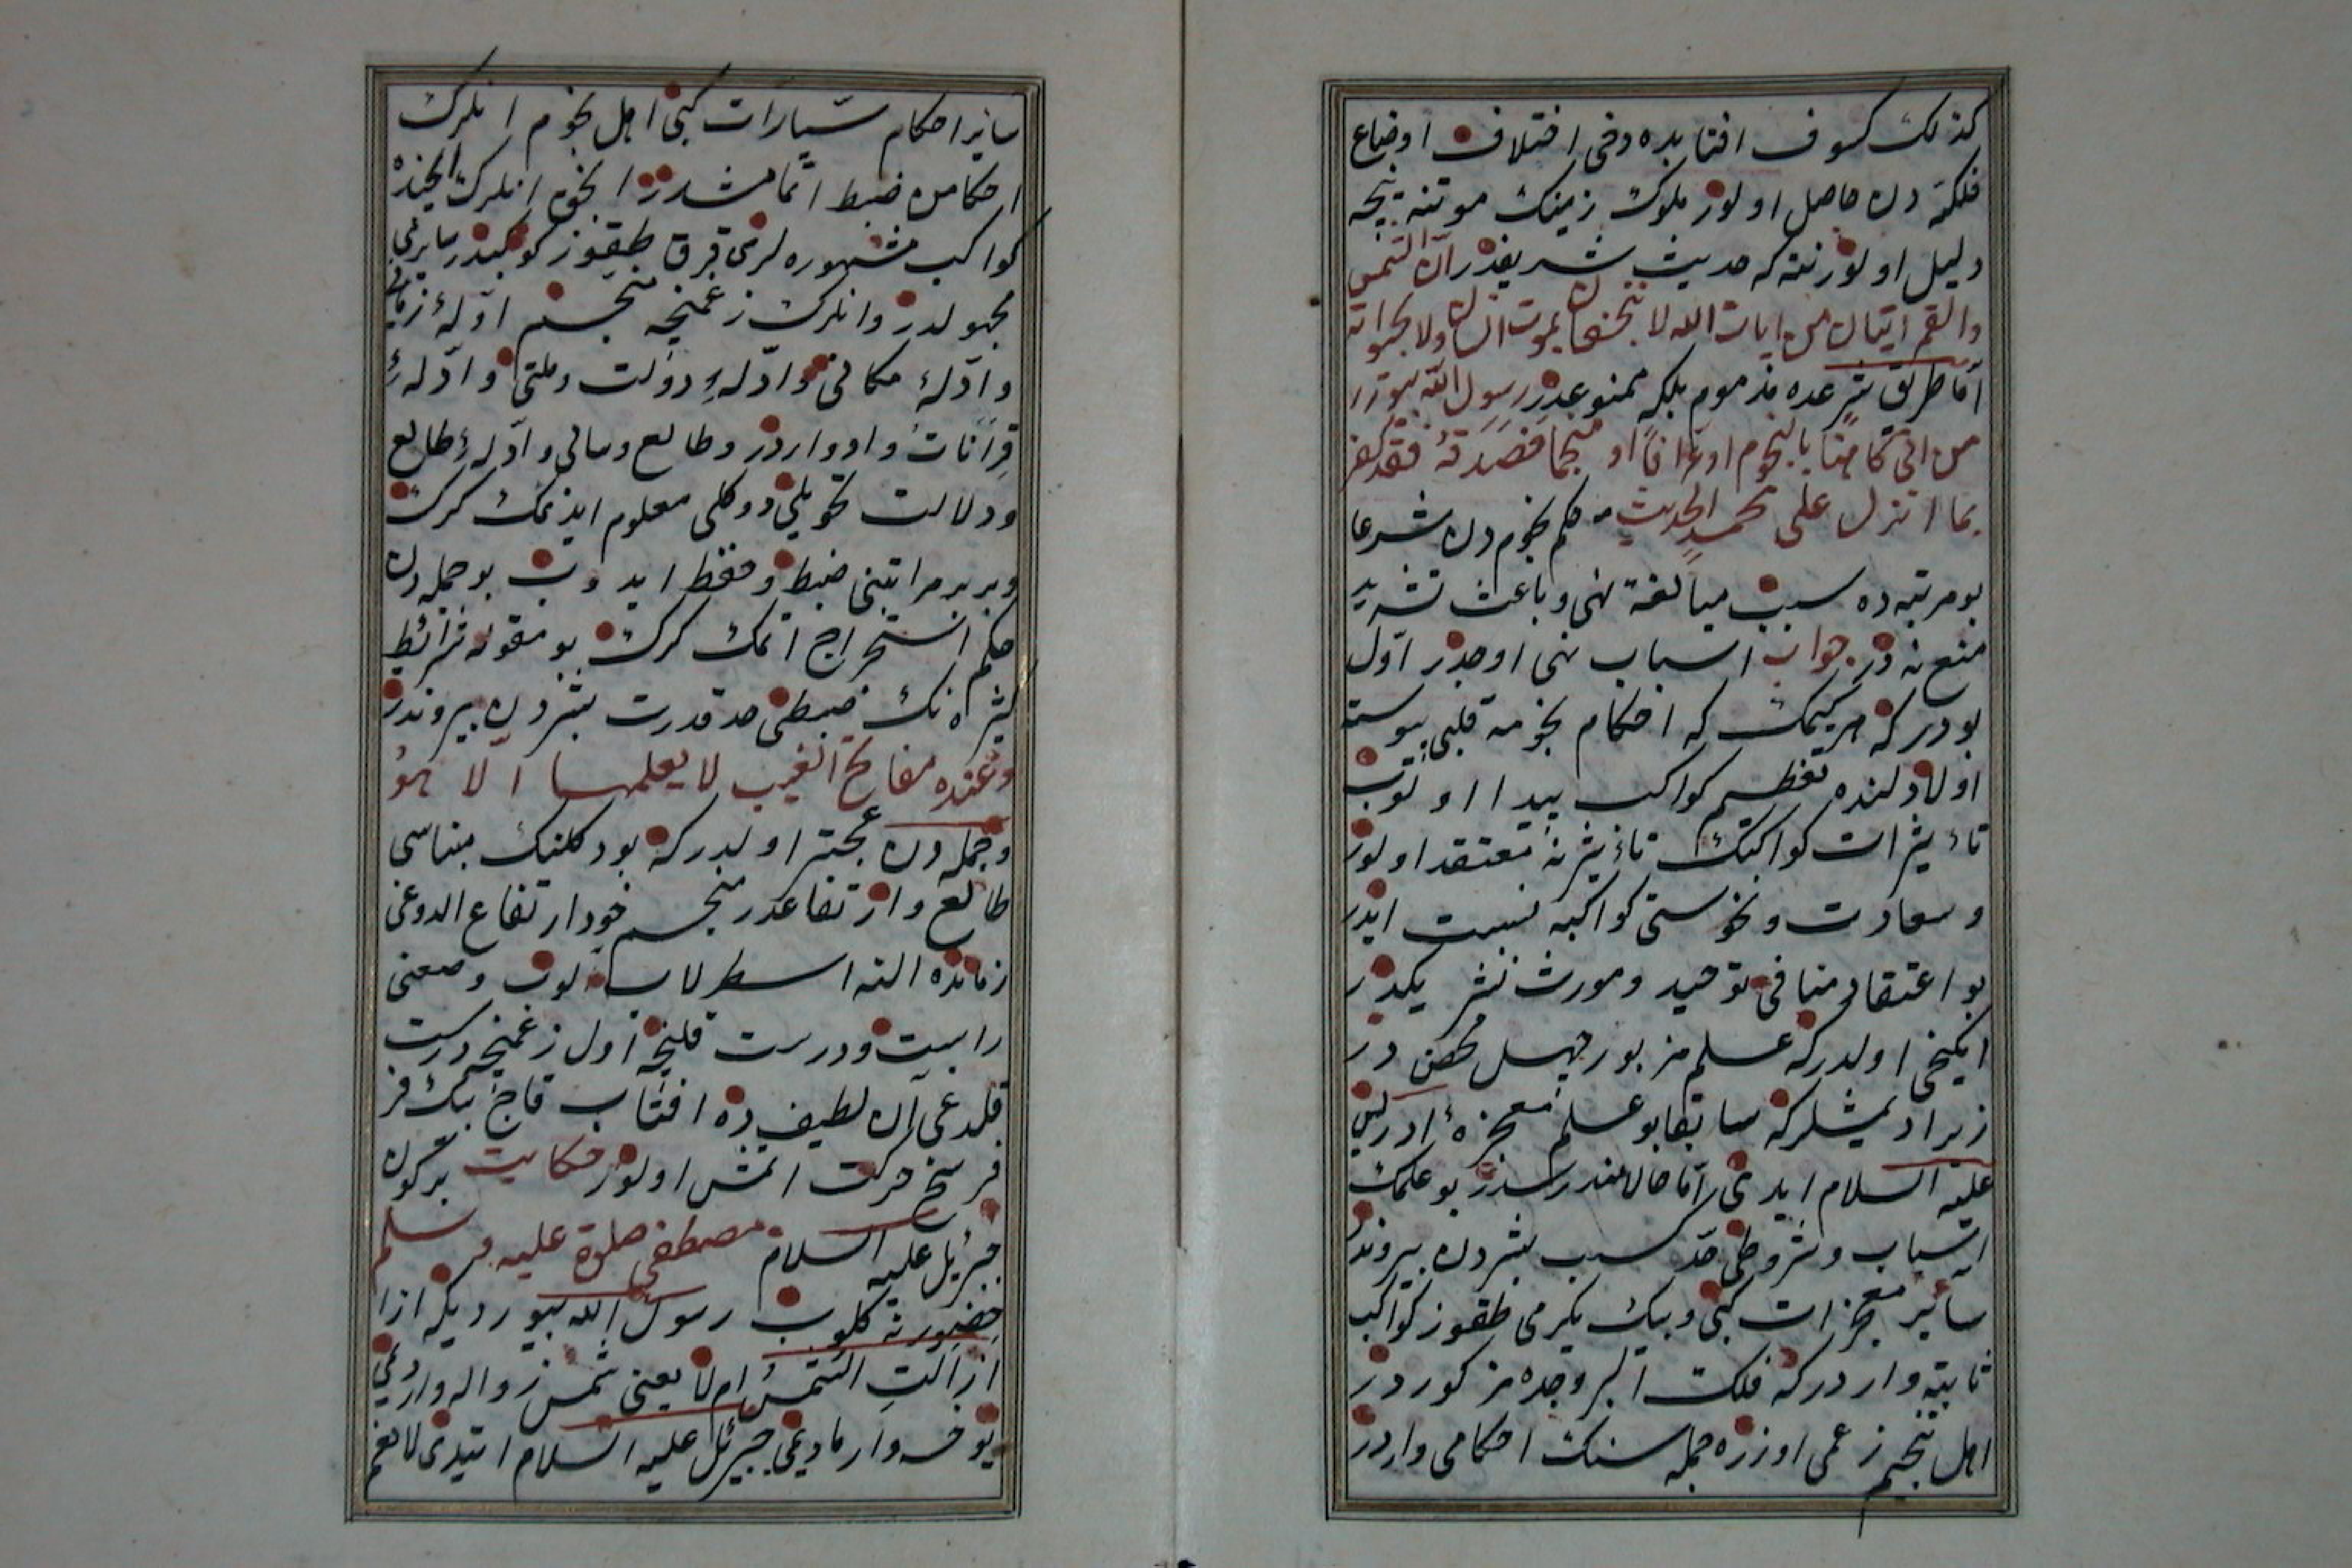 كذلك كسوف افتابده دخی اختلاف اوضاع
فلكیه دن حاصل اولور ملوك زمینك موتنه نتیجه
دلیل اولور نته كه حدیث شریفدر ان الشمس
والقمر ایتان من ایات الله لا ینخسفان لموت انسان ولا لحیواته
اما طریق شرعده مذموم بلكه ممنوعدر رسول الله بیورر
من اتی كاهنا بالنجوم او عرافا او منجما فصدقه فقد كفر
بما انزل علی محمد الحدیث حكم نجوم دن شرعا
بو مرتبه ده سبب مبالغۀ نهی وباعث تشدید
منع نه در جواب اسباب نهی اوجدر اول
بودر كه هر كیمك كه احكام نجومه قلبی پیوسته
اولا دلنده تعظیم كواكب پیدا اولوب
تاءثیرات كواكبك تاءثیرنه معتقد اولور
وسعادت ونحوستی كواكبه نسبت ایدر
بو اعتقاد منافی توحید ومورث تشریكدر
ایكنجی اولدر كه علم مزبور جهل محض در
زیرا دیمشلر كه سابقا بو علم معجزۀ ادریس
علیه السلام ایدی اما حالا مندرسدر بو علمك
اسباب وشروطی حد كسب بشردن بیروندر
سائیر معجزات كبی وبیك یكرمی طقوز كواكب
ثابته واردر كه فلك البروجده مزكوردر
اهل تنجیم زعمی اوزره جمله سنك احكامی واردر
سایر احكام سیارات كبی اهل نجوم انلرك
احكامن ضبط اتمامشدر انجق انلرك ایجنده
كواكب مشهوره لری قرق طقوز كوكبدر سایری
مجهولدر وانلرك زعمنجه منجم ادلۀ زمانی
وادلۀ مكانی وادلۀ دولت وملتی وادلۀ
قرانات وادواردر وطالع وسالی وادلۀ طالع
ودلالت تحویلی دوكلی معلوم ایدنمك كرك
وبربر مراتبنی ضبط وحفظ ایدوب بو جمله دن
حكم استخراج اتمك كرك بو مقوله شرائط
كثیره نك ضبطی حد قدرت بشردن بیروندر
وعنده مفاتح الغیب لا یعلمها الا هو
وجمله دن عجبتر اولدر كه بو دكلنك مبناسی
طالع وارتفاعدر منجم خود ارتفاع الدوغی
زمانده النه اسطرلاب الوب وضعنی
راست ودرست قلنجه اول زعمنجه درست
قلدغی آن لطیفده افتاب قاج بیك فر
فرسخ حركت اتمش اولور حكایت بر كون
جبرئیل علیه السلام مصطفی صلوة علیه وسلم
حضورنه كلوب رسول الله بیوردیكه ازا
ازالت الشمس ام لا یعنی شمس زواله واردیمی
یوخسه وارمادیمی جبرئیل علیه السلام ایتدی لا نعم